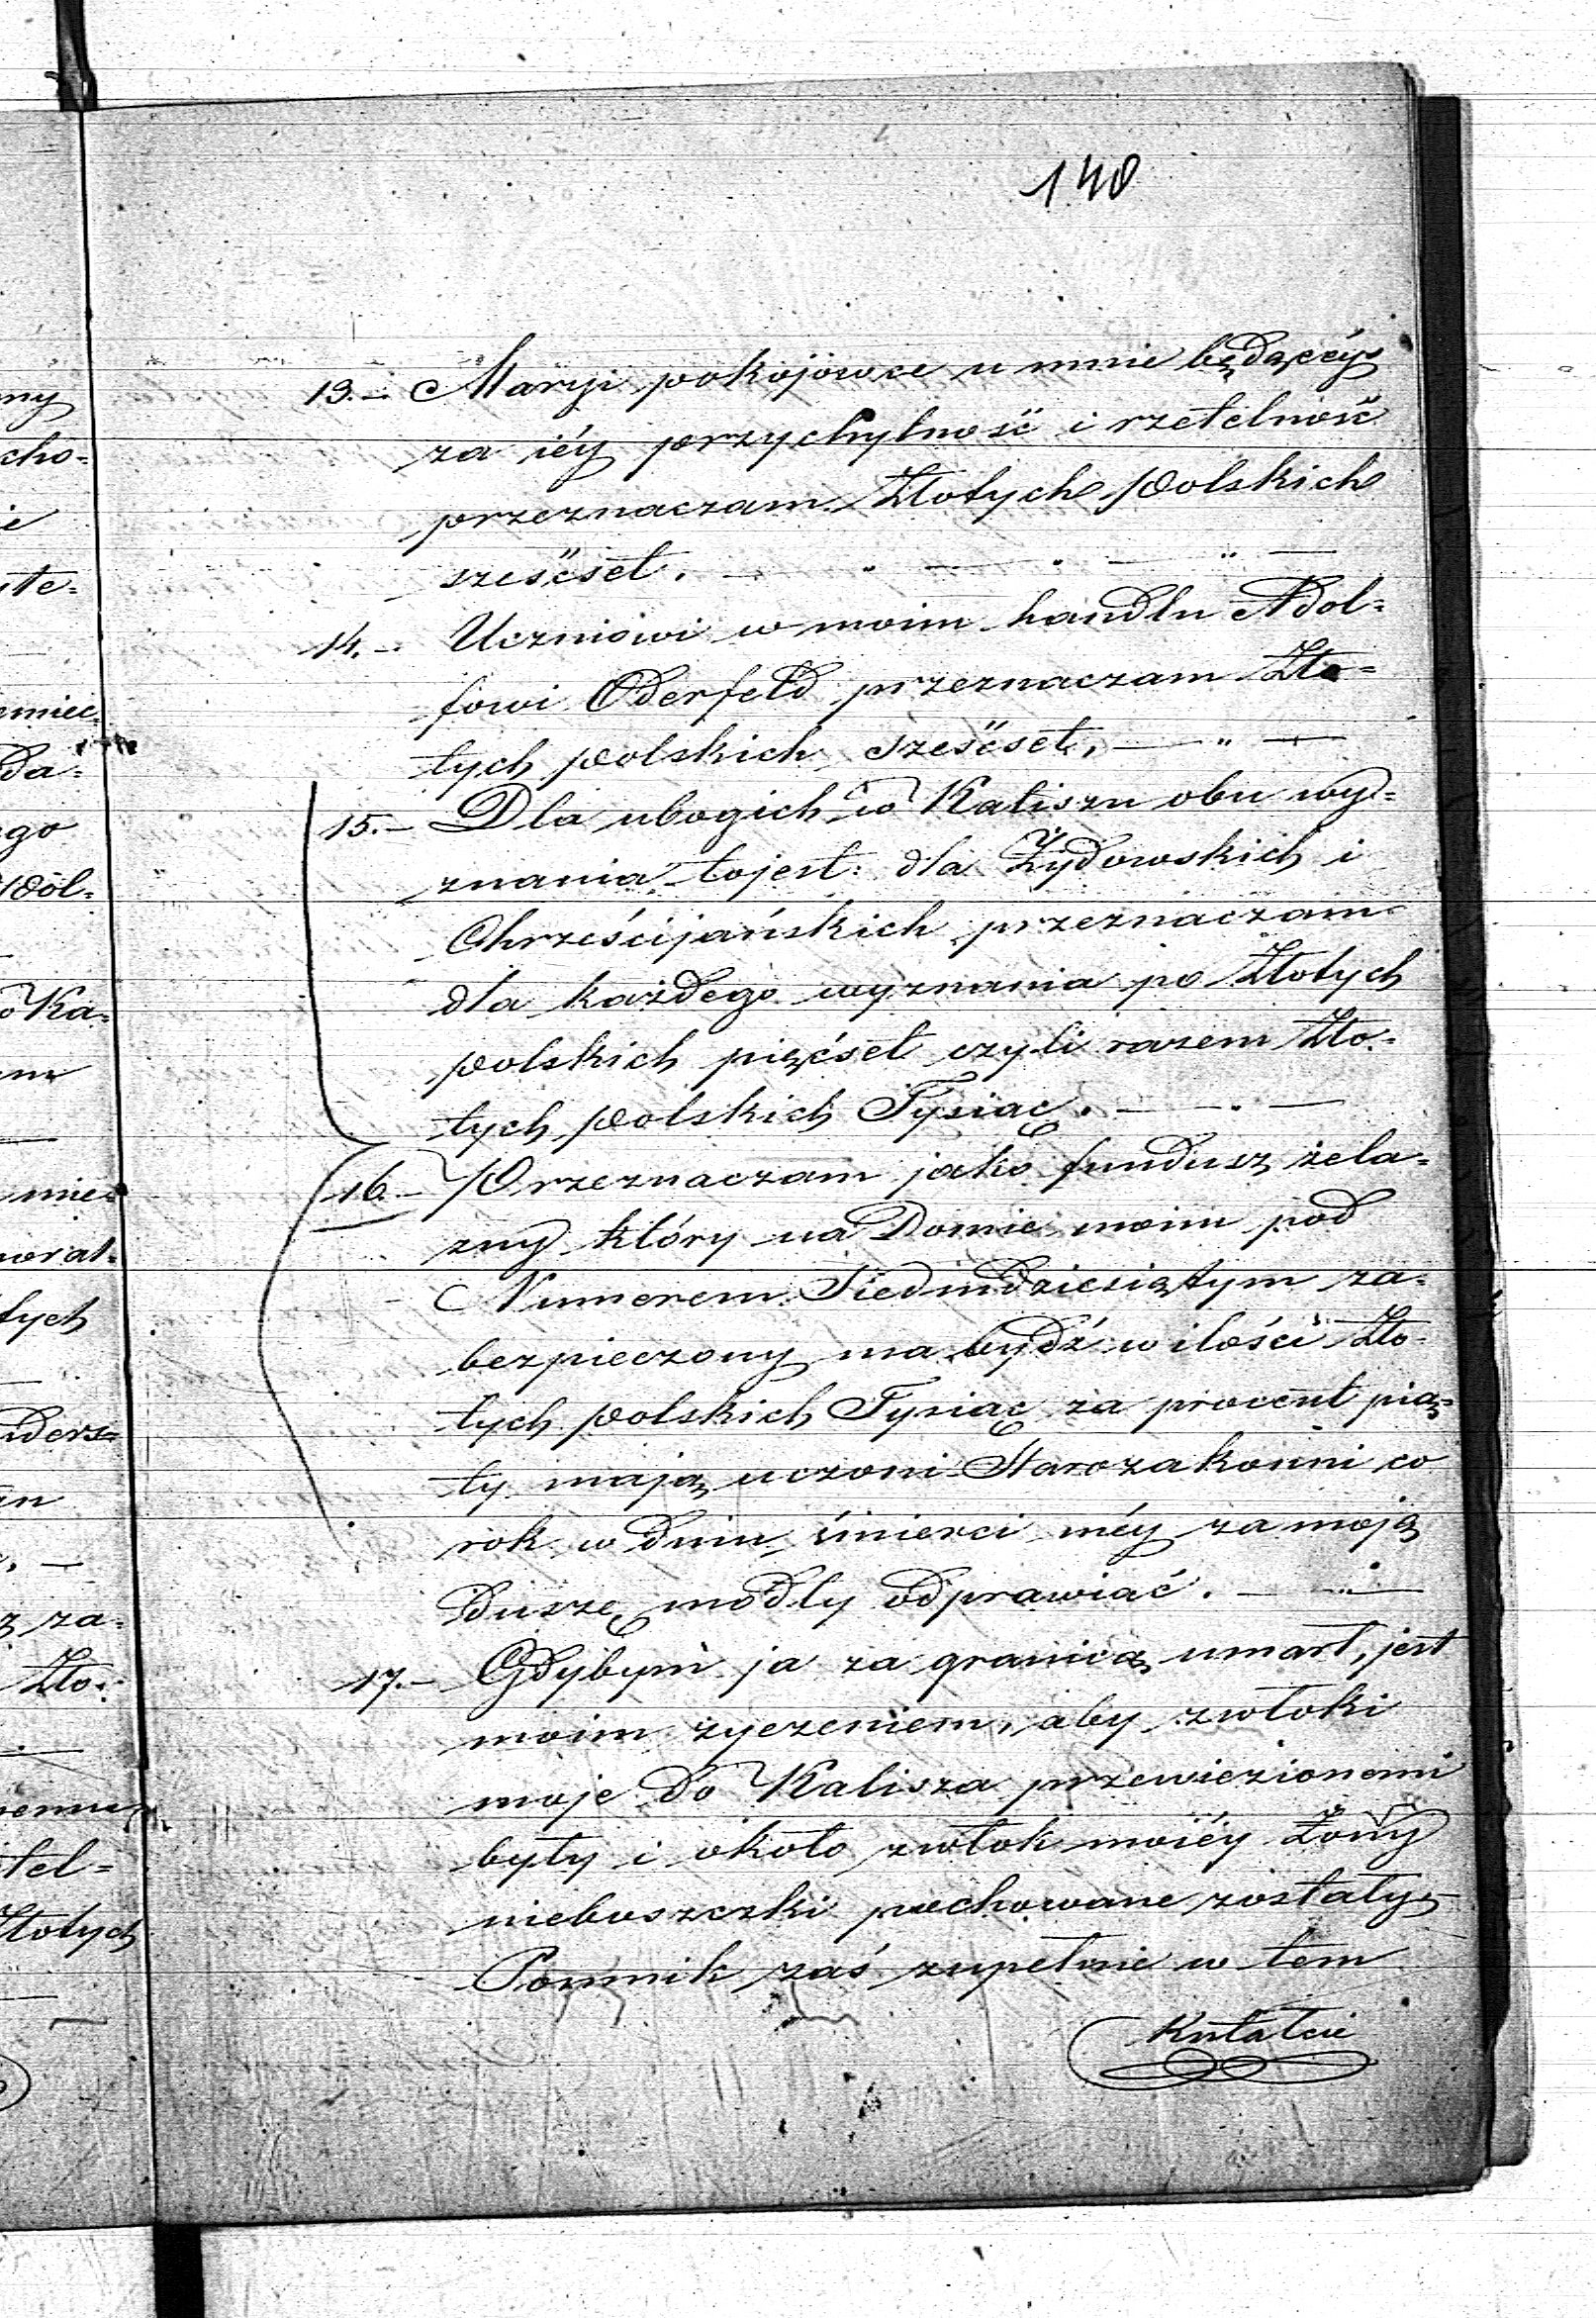 140
13.- Maryi pokojówce u mnie będącéy
za iéy przychylność i rzetelność
przeznaczam Złotych Polskich
sześćset. — " — " — " —
14.- Uczniowi w moim handlu Adol=
fowi Oderfeld przeznaczam Zło=
tych Polskich sześćset, — " —
15.- Dla ubogich w Kaliszu obu wy=
znania tojest: dla Żydowskich i
Chrześcijańskich przeznaczam
dla każdego wyznania po Złotych
Polskich pięćset czyli razem Zło=
tych Polskich Tysiąc. — . —
16.- Przeznaczam jako fundusz żela=
zny który na Domie moim pod
Numerem Siedmdziesiątym za=
bezpieczony ma bydź w ilości Zło=
tych Polskich Tysiąc za procent pią=
ty mają uczoni Starozakonni co
rok w dniu śmierci méy za moją
Duszę modły odprawiać. — " —
17.- Gdybym ja za granicą umarł, jest
moim życzeniem, aby zwłoki
moje do Kalisza przewiezionemi
były i około zwłok moiéy Żony
nieboszczki pochowane zostały,
Pomnik zaś zupełnie w tem
Kształcie